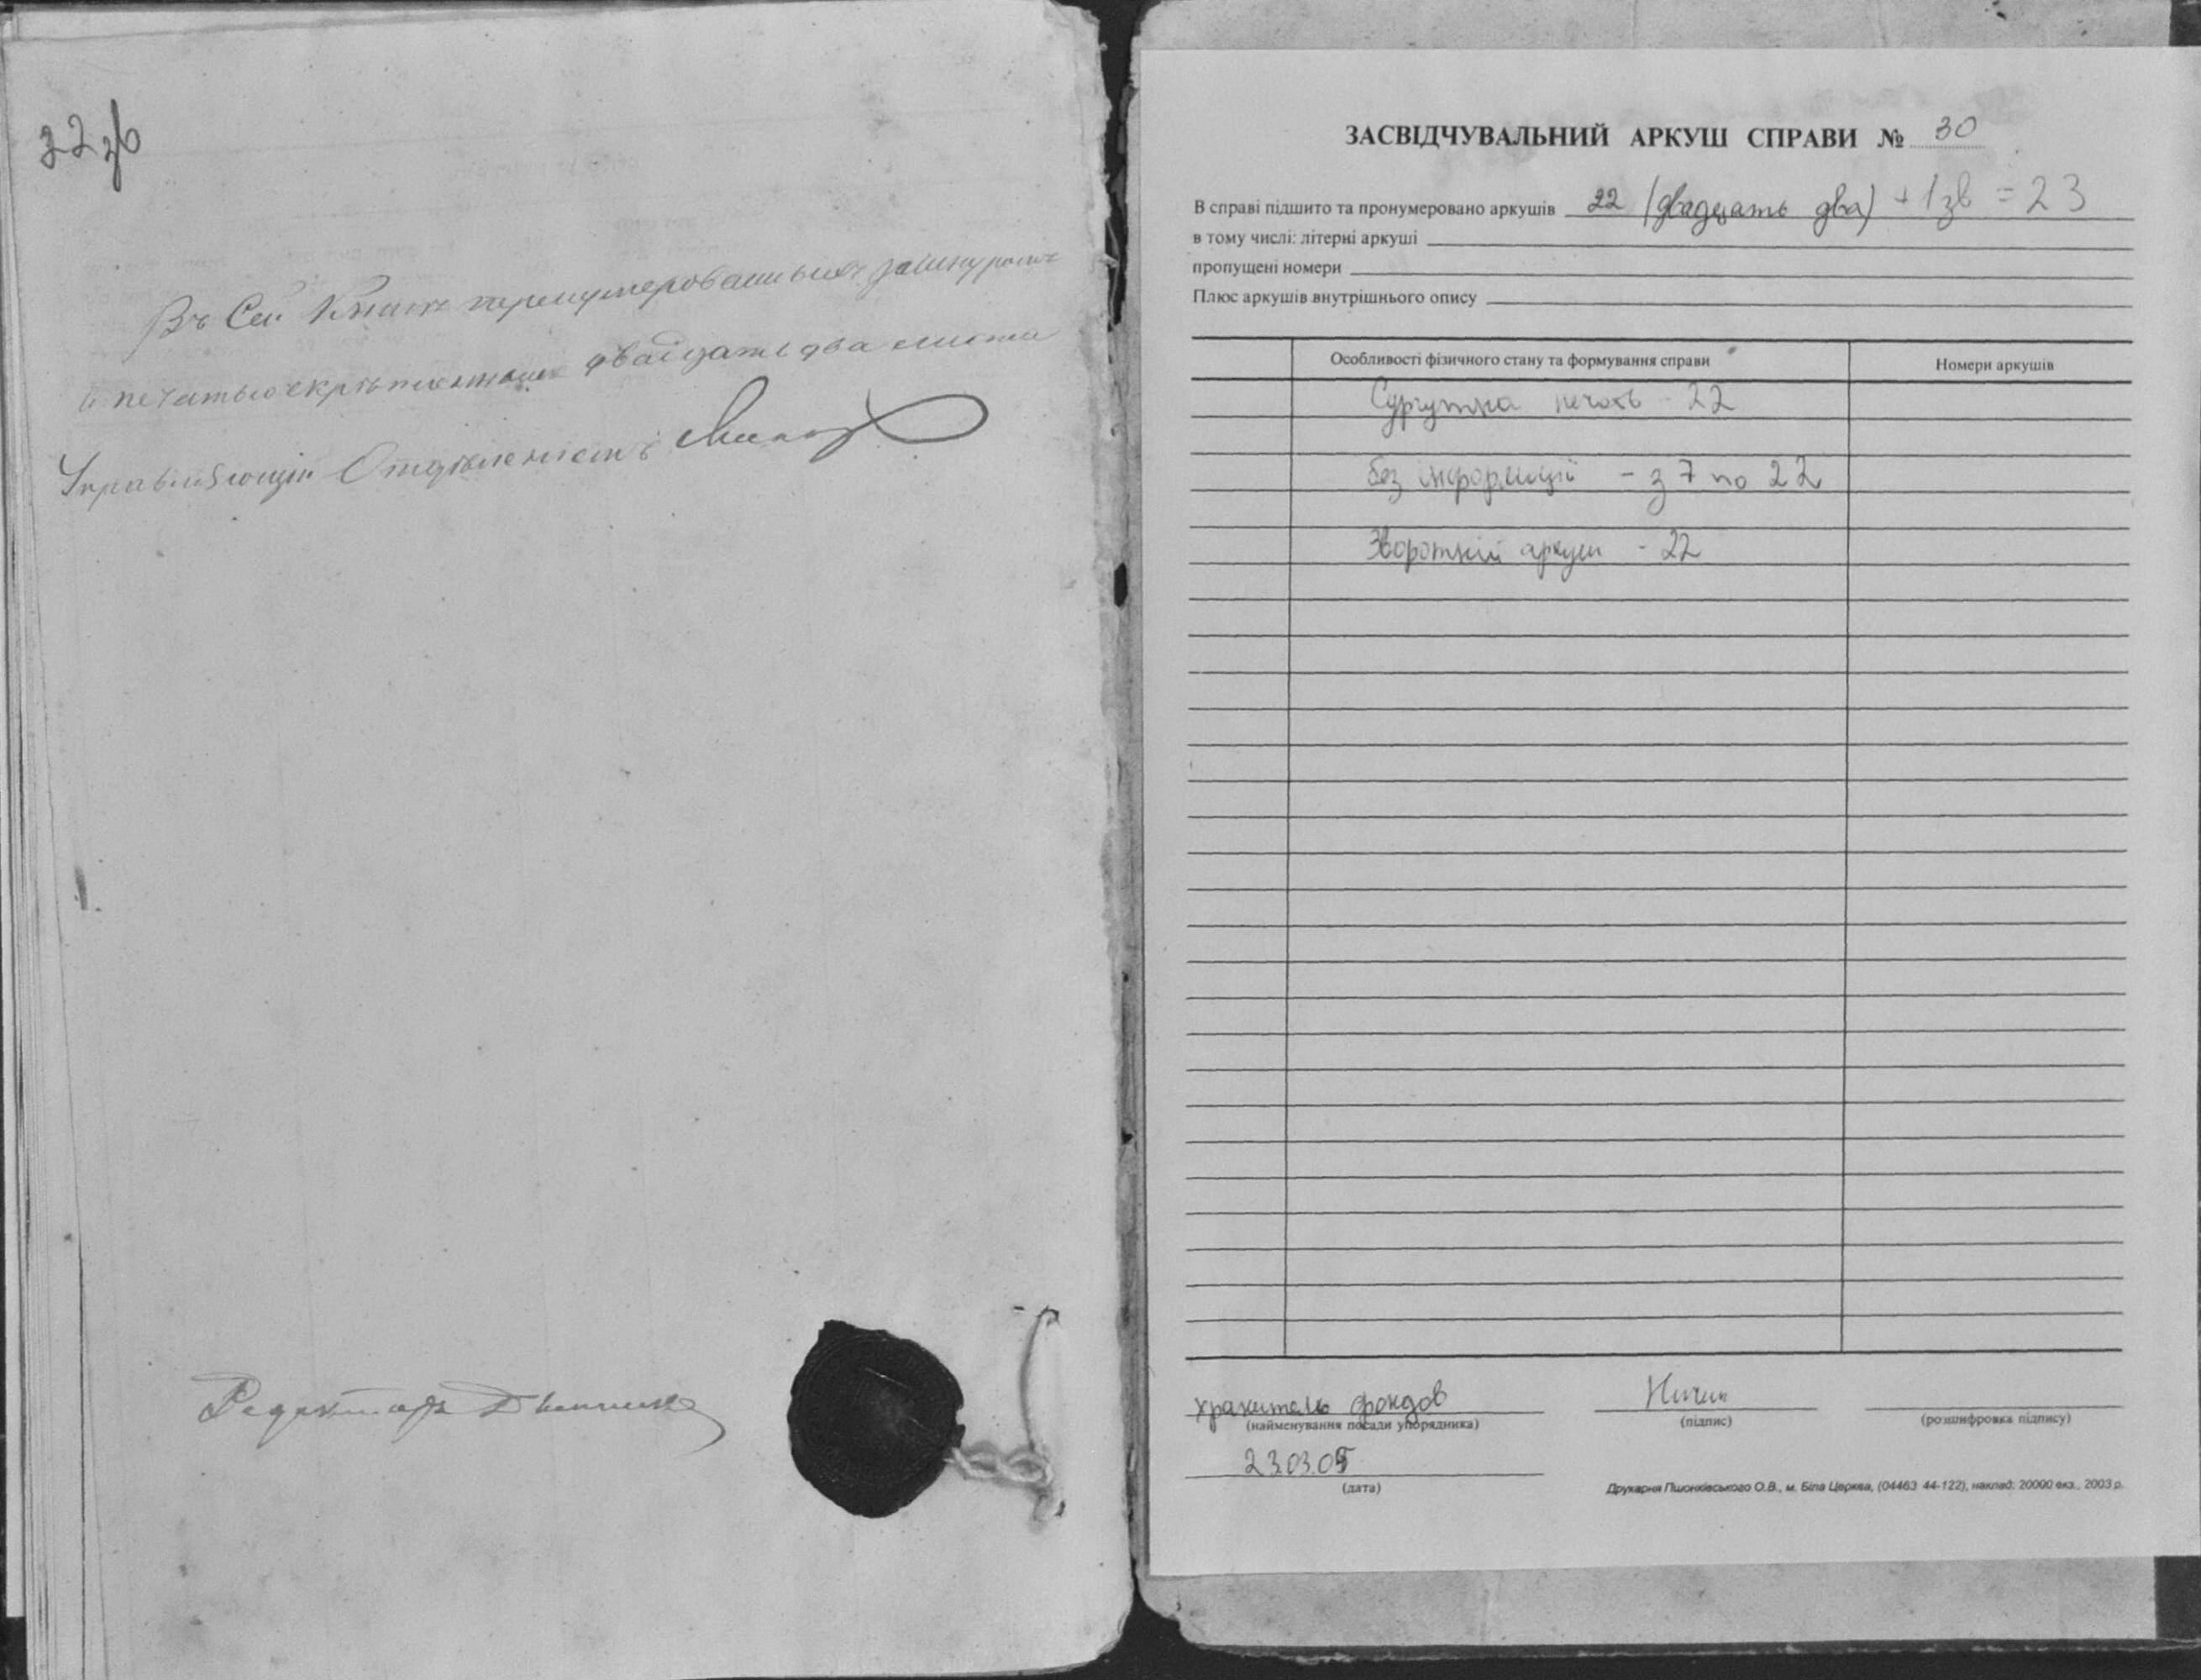 22 зв
Въ Сей Книгѣ перенумерованныхъ зашнурован.
и печатью скрѣпленныхъ двадцать два листа
Управляющій Отдѣленіемъ
Редакторъ
ЗАСВІДЧУВАЛЬНИЙ АРКУШ СПРАВИ № 30
В справі підшито та пронумеровано аркушів 22 (двадцать два) + 1 зв = 23
в тому числі: літерні аркуші
пропущені номери
Плюс аркушів внутрішнього опису
Особливості фізичного стану та формування справи
Номери аркушів
Сургучна печать - 22
без інформації - з 7 по 22
Зворотній аркуш - 22
хранитель фондов
(найменування посади упорядника)
(підпис)
(розшифровка підпису)
23.03.05
(дата)
Друкарня Пшонківського О.В., м. Біла Церква, (04463 44-122), наклад: 20000 екз., 2003 р.